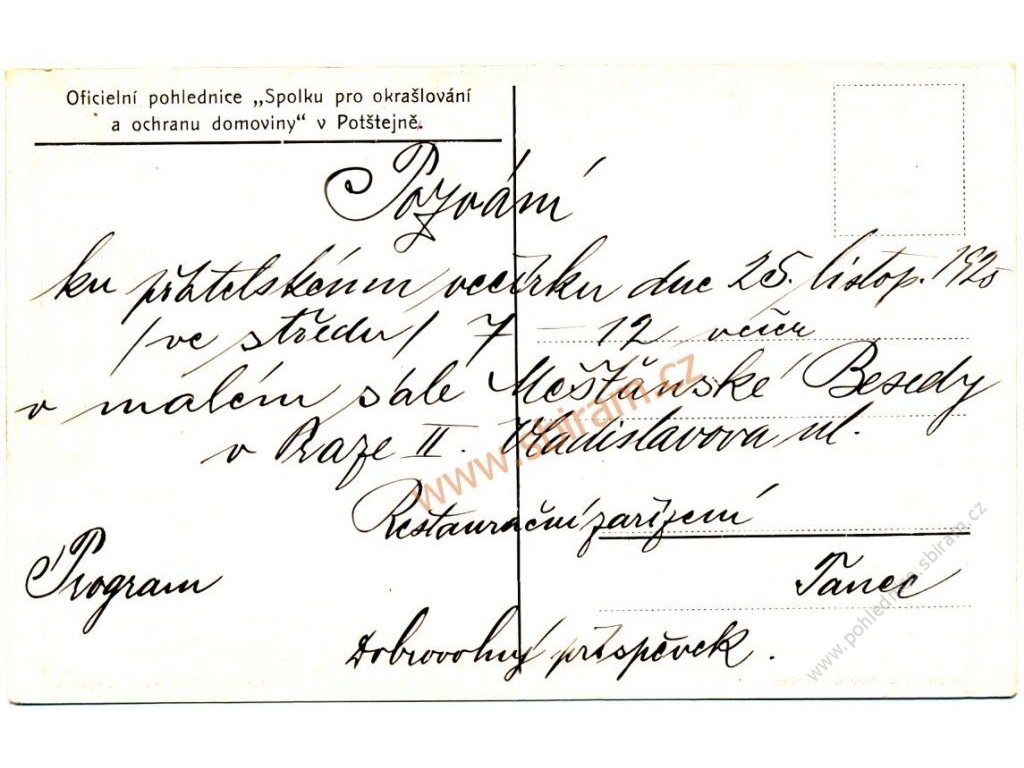 Oficielní pohlednice „Spolku pro okrašlování
a ochranu domoviny“ v Potštejně.
Pozvání
ku přátelskému večírku dne 25. listop. 1925
/ve středu/ 7 – 12 večer
v malém sále Měšťánské Besedy
v Praze II. Vladislavova ul.
Restaurační zařízení
Program
Tanec
Dobrovolný příspěvek.
www.sbiram.cz
www.pohlednice.sbiram.cz